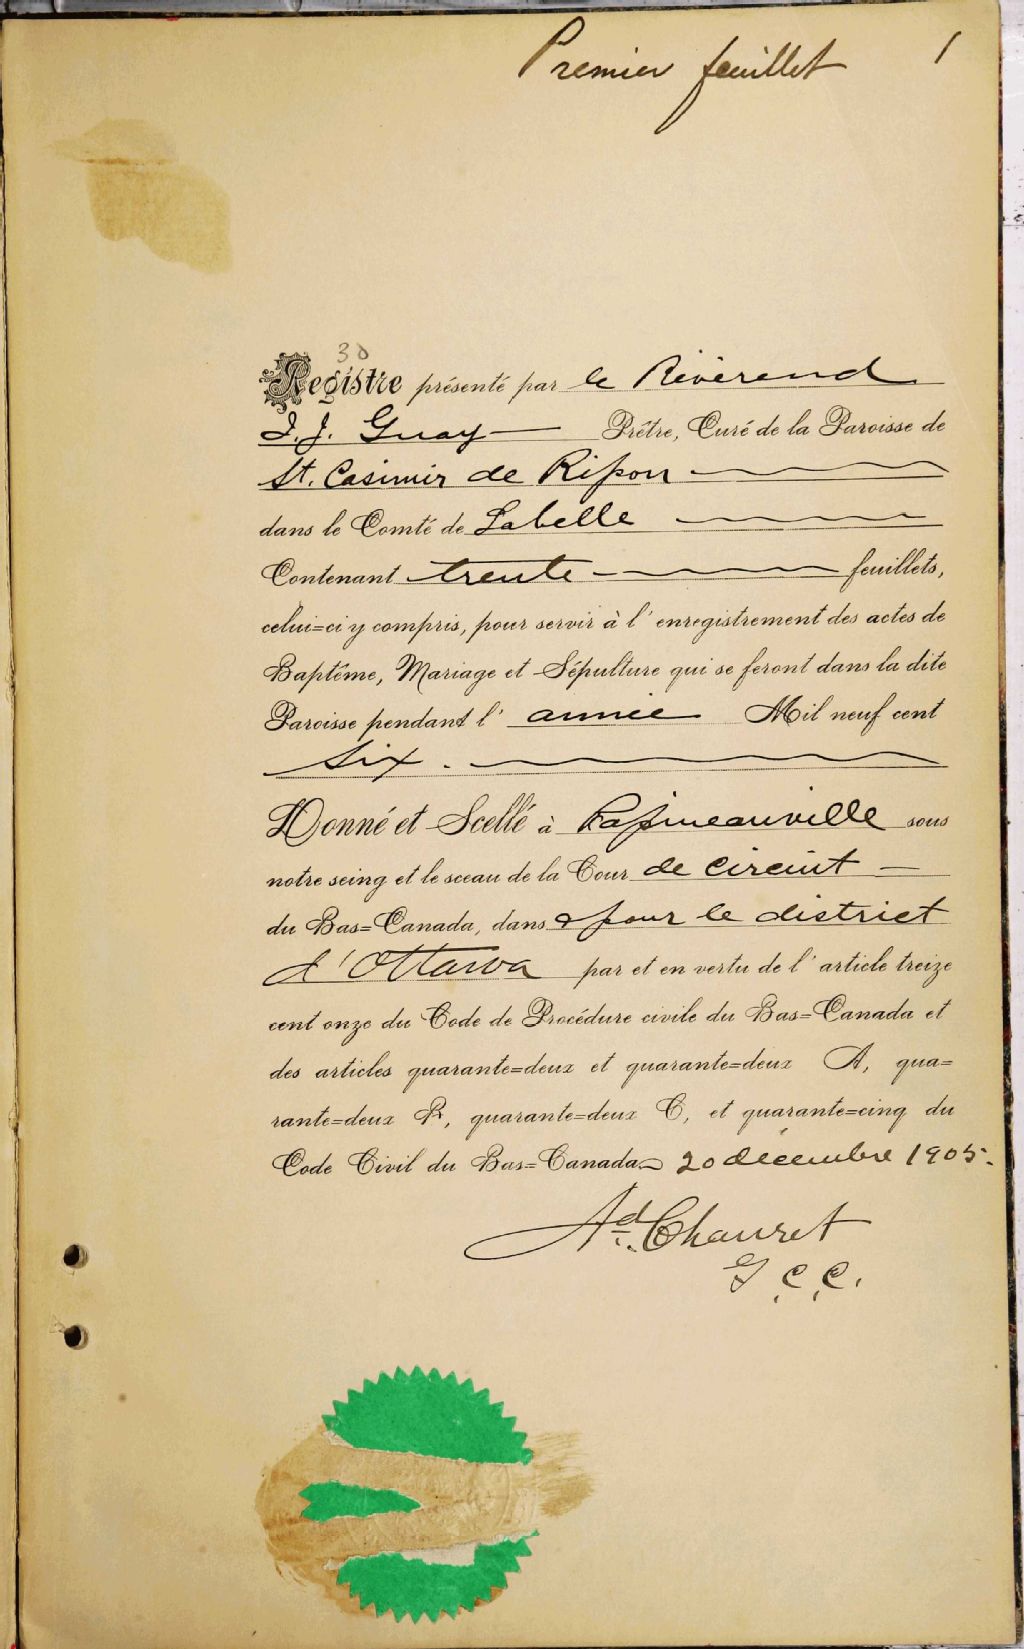 Premier feuillet 1
30
Registre présenté par le Révérend
J. J. Guay Prêtre, Curé de la Paroisse de
St. Casimir de Ripon
dans le Comté de Labelle
Contenant trente feuillets,
celui=ci y compris, pour servir à l'enregistrement des actes de
Baptême, Mariage et Sépulture qui se feront dans la dite
Paroisse pendant l'année Mil neuf cent
six.
Donné et Scellé à Papineauville sous
notre seing et le sceau de la Cour de circuit
du Bas=Canada, dans & pour le district
d'Ottawa par et en vertu de l'article treize
cent onze du Code de Procédure civile du Bas=Canada et
des articles quarante=deux et quarante=deux A, qua=
rante=deux B, quarante=deux C, et quarante=cinq du
Code Civil du Bas=Canada 20 décembre 1905.
Ad. Chauret
G.C.C.